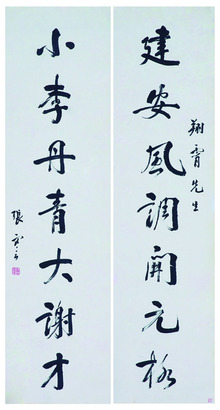 建安風調開元格
翔霄先生
小李丹青大謝才